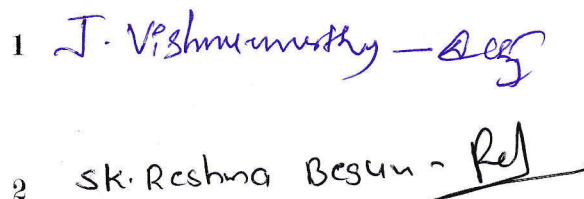 1 J. Vishnumurthy —
2 SK. Reshma Begum -